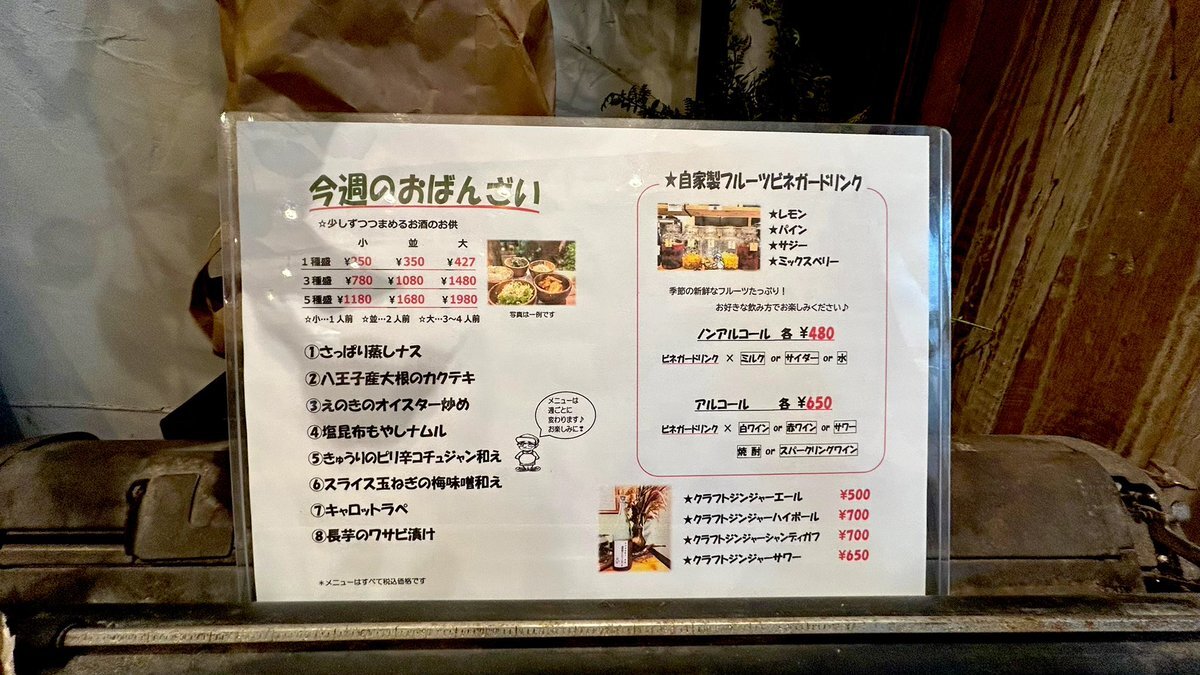 今週のおばんざい
☆少しずつつまめるお酒のお供
小 並 大
1種盛 ¥250 ¥350 ¥427
3種盛 ¥780 ¥1080 ¥1480
5種盛 ¥1180 ¥1680 ¥1980
☆小…1人前 ☆並…2人前 ☆大…3〜4人前
写真は一例です
①さっぱり蒸しナス
②八王子産大根のカクテキ
③えのきのオイスター炒め
④塩昆布もやしナムル
⑤きゅうりのピリ辛コチュジャン和え
⑥スライス玉ねぎの梅味噌和え
⑦キャロットラペ
⑧長芋のワサビ漬け
メニューは
週ごとに
変わります♪
お楽しみに❣
*メニューはすべて税込価格です
★自家製フルーツビネガードリンク
★レモン
★パイン
★サジー
★ミックスベリー
季節の新鮮なフルーツたっぷり！
お好きな飲み方でお楽しみください♪
ノンアルコール 各 ¥480
ビネガードリンク × ミルク or サイダー or 水
アルコール 各 ¥650
ビネガードリンク × 白ワイン or 赤ワイン or サワー
焼酎 or スパークリングワイン
★クラフトジンジャーエール ¥500
★クラフトジンジャーハイボール ¥700
★クラフトジンジャーシャンディガフ ¥700
★クラフトジンジャーサワー ¥650